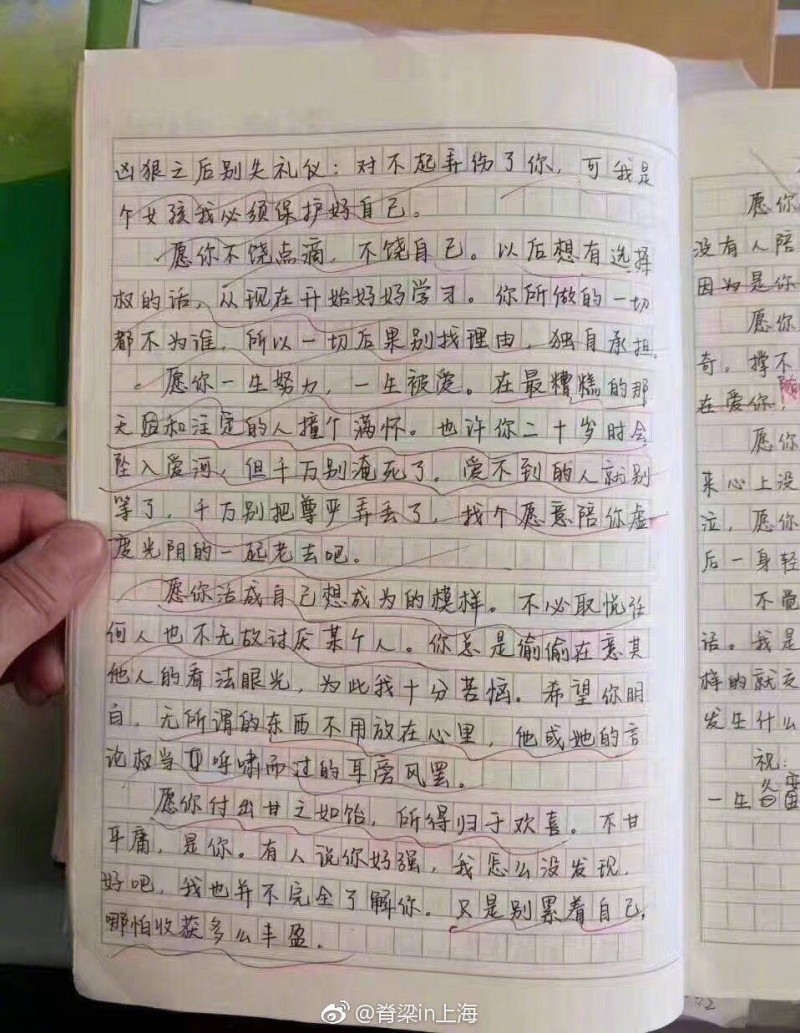 凶狠之后别失礼仪：对不起弄伤了你，可我是
个女孩我必须保护好自己。
愿你不饶点滴，不饶自己。以后想有选择
权的话，从现在开始好好学习。你所做的一切
都不为谁，所以一切后果别找理由，独自承担。
愿你一生努力，一生被爱。在最糟糕的那
天因和注定的人撞个满怀。也许你二十岁时会
坠入爱河，但千万别淹死了。爱不到的人就别
等了，千万别把尊乎弄丢了，找个愿意陪你虚
度光阴的一起老去吧。
愿你活成自己想成为的模样。不必取悦任
何人也不无故讨厌某个人。你总是偷偷在意其
他人的看法眼光，为此我十分苦恼。希望你明
白，无所谓的东西不用放在心里，他或她的言
论权当呼啸而过的耳旁风罢。
愿你付出甘之如饴，所得归于欢喜。不甘
平庸，是你。有人说你好强，我怎么没发现，
好吧，我也并不完全了解你。只是别累着自己，
哪怕收获多么丰盈。
愿你
没有人陪
因为是你
愿你
奇，撑不
在爱你，
愿你
来心上没
泣，愿你
后一身轻
不觉
话。我是
样的就交
发生什么
祝：
一生
@脊梁in上海